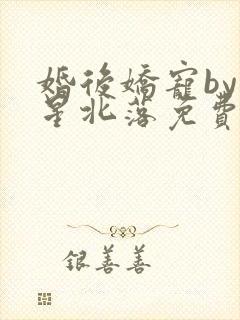 婚後嬌寵by
星北落免費
銀善善